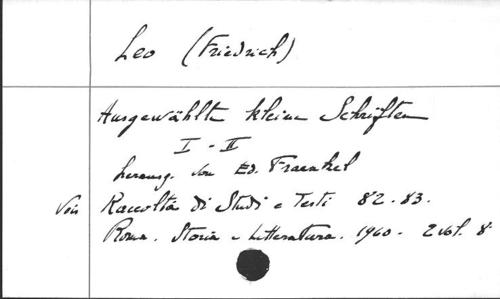 Leo (Friedrich)
Ausgewählte kleine Schriften
I - II
herausg. von Ed. Fraenkel
Voir Raccolta di Studi e Testi 82-83.
Roma. Storia e Letteratura. 1960 - 2 vol. 8